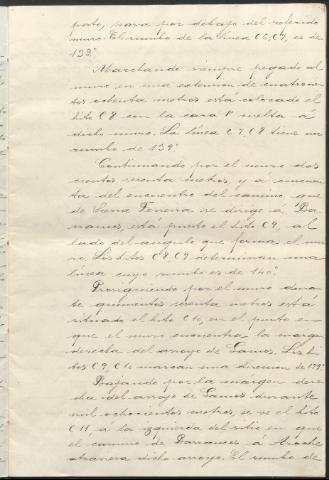 porte, pasa por debajo del referido
muro. El rumbo de la linea C6, C7, es de
133°
Marchando siempre pegado al
muro en una extension de cuatrocien
tos ochenta metros está colocado el
hito C8 con la cara P vuelta á
dicho muro. La linea C7, C8 tiene un
rumbo de 139°
Continuando por el muro dos
cientos setenta metros, y á
ta del encuentro del camino que
de Serra Ferreira se dirige á Ba
rrancos, está puesto el hito C9, al
lado del angulo que forma el mu
ro. Los hitos C8, C9 determinan una
linea cuyo rumbo es de 140°
Prosiguiendo por el muro duran
te quinientos setenta metros está
situado el hito C10, en el punto en
que el muro encuentra la margen
derecha del arroyo de Gamos. Los hi
tos C9, C10 marcan una direccion de 179°
Bajando por la margen dere
cha del arroyo de Gamos durante
mil ochocientos metros, se ve el hito
C11 á la izquierda del sitio en que
el camino de Barrancos á Aroche
atraviesa dicho arroyo. El rumbo de